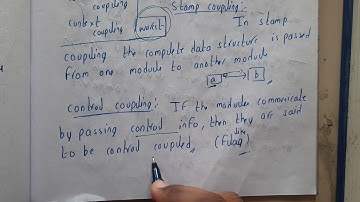 coupling
context
coupling
worst
Stamp coupling:
In stamp
coupling the complete data structure is passed
from one module to another module
a
b
control coupling: If the modules communicate
by passing control info, then they are said
to be control coupled. (Flag)